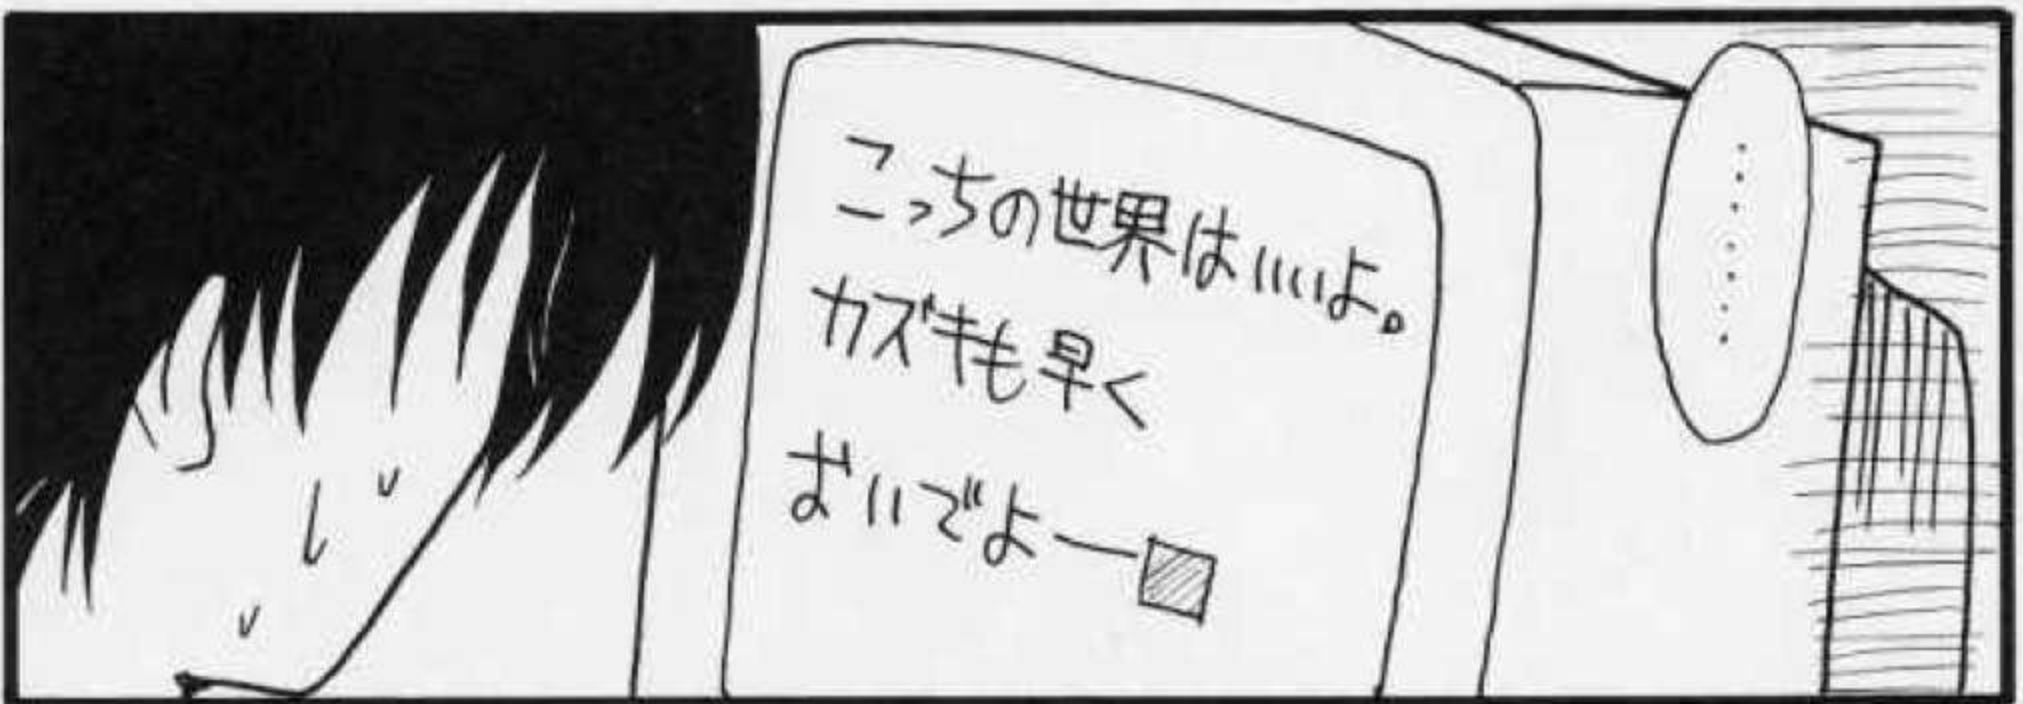 ………
こっちの世界はいいよ。
カズキも早く
おいでよー